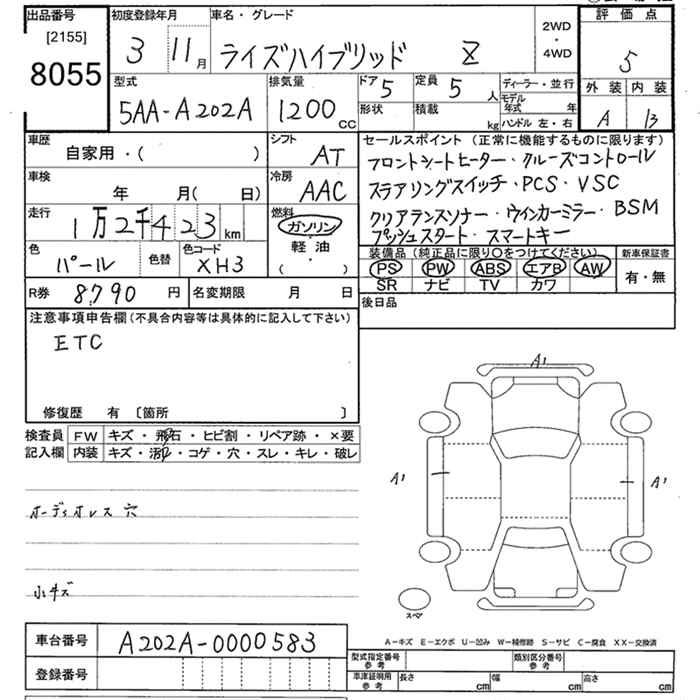 出品番号
[2155]
8055
初度登録年月
3 11 月
車名・グレード
ライズハイブリッド Z
2WD
・
4WD
評価点
5
外装 内装
A B
型式
5AA-A202A
排気量
1200 CC
ドア 5
定員 5 人
形状
積載 kg
ディーラー・並行
モデル年式 年
ハンドル 左・右
車歴
自家用・( )
シフト
AT
車検
年 月( 日)
冷房
AAC
走行
1万2千423 km
燃料
ガソリン・
軽油・
( )
色
パール
色替
色コード
XH3
セールスポイント (正常に機能するものに限ります)
フロントシートヒーター・クルーズコントロール
ステアリングスイッチ・PCS・VSC
クリアランスソナー・ウィンカーミラー・BSM
プッシュスタート・スマートキー
装備品 (純正品に限り○をつけてください)
PS PW ABS エアB AW
SR ナビ TV カワ
新車保証書
有・無
R券 8,790 円
名変期限 月 日
後日品
注意事項申告欄(不具合内容等は具体的に記入して下さい)
ETC
修復歴 有 〔箇所 〕
検査員
記入欄
FW キズ・飛石・ヒビ割・リペア跡・×要
内装 キズ・汚・コゲ・穴・スレ・キレ・破レ
オーディオレス 穴
小キズ
A1
A1
A1
スペア
A-キズ E-エクボ U-凹み W-補修跡 S-サビ C-腐食 XX-交換済
車台番号 A202A-0000583
登録番号
型式指定番号
参考
類別区分番号
参考
車庫証明用
参考
長さ cm
幅 cm
高さ cm